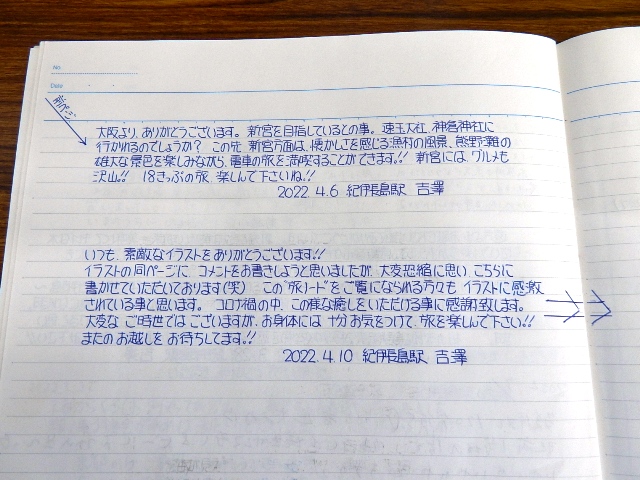 No.
Date
前ページ
大阪より、ありがとうございます。新宮を目指しているとの事。速玉大社、神倉神社に
行かれるのでしょうか？ この先、新宮方面は、懐かしさを感じる漁村の風景、熊野灘の
雄大な景色を楽しみながら、電車の旅を満喫することができます!! 新宮には、グルメも
沢山!! 18きっぷの旅、楽しんで下さいね!!
2022.4.6 紀伊長島駅 吉澤
いつも、素敵なイラストをありがとうございます!!
イラストの同ページに、コメントをお書きしようと思いましたが、大変恐縮に思い、こちらに
書かせていただいております(笑) この"旅ノート"をご覧になられる方々も イラストに感激
されている事と思います。 コロナ禍の中、この様な癒しをいただける事に感謝致します。
大変な ご時世では ございますが、お身体には 十分お気をつけて、旅を楽しんで下さい!!
またのお越しを お待ちしてます!!
2022.4.10 紀伊長島駅 吉澤